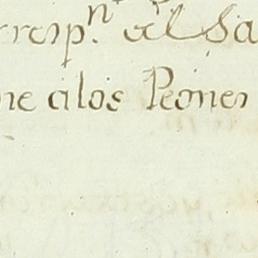 rresp.n al Sa
ne alos Peones